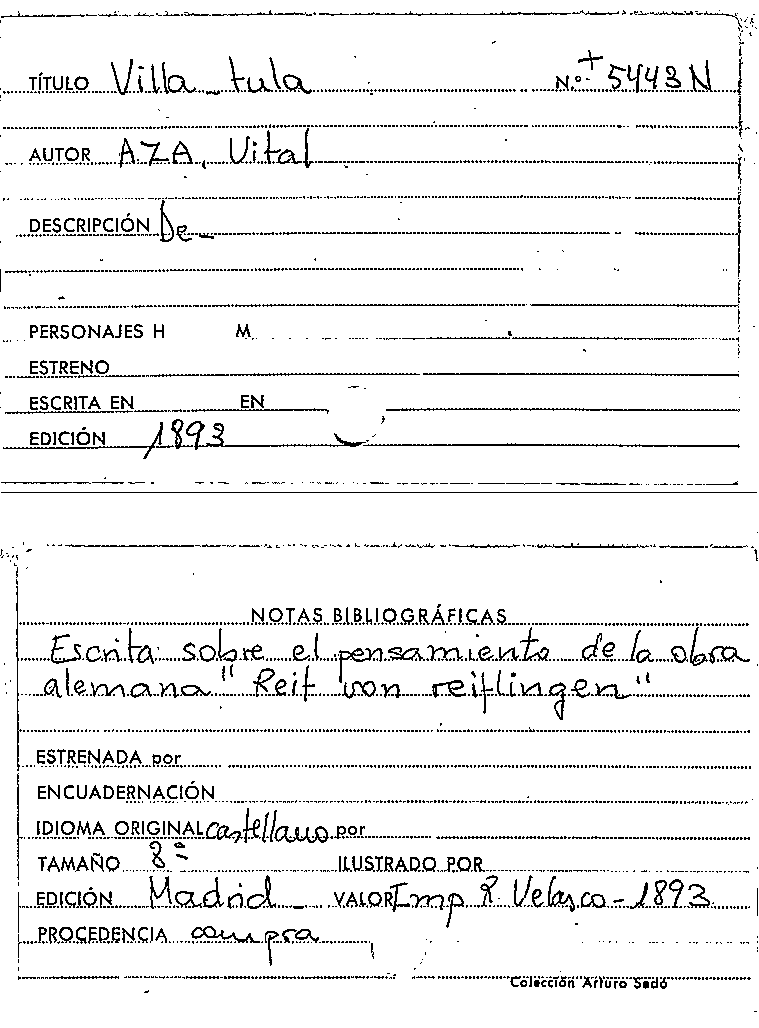 TÍTULO Villa-tula Nº + 5443 N
AUTOR AZA, Vital
DESCRIPCIÓN De-
PERSONAJES H M.
ESTRENO
ESCRITA EN EN
EDICIÓN 1893
NOTAS BIBLIOGRÁFICAS
Escrita sobre el pensamiento de la obra
alemana "Reif von reiflingen"
ESTRENADA por
ENCUADERNACIÓN
IDIOMA ORIGINAL castellano por
TAMAÑO 8º ILUSTRADO POR
EDICIÓN Madrid - VALOR Imp R. Velasco - 1893
PROCEDENCIA compra
Colección Arturo Sedó